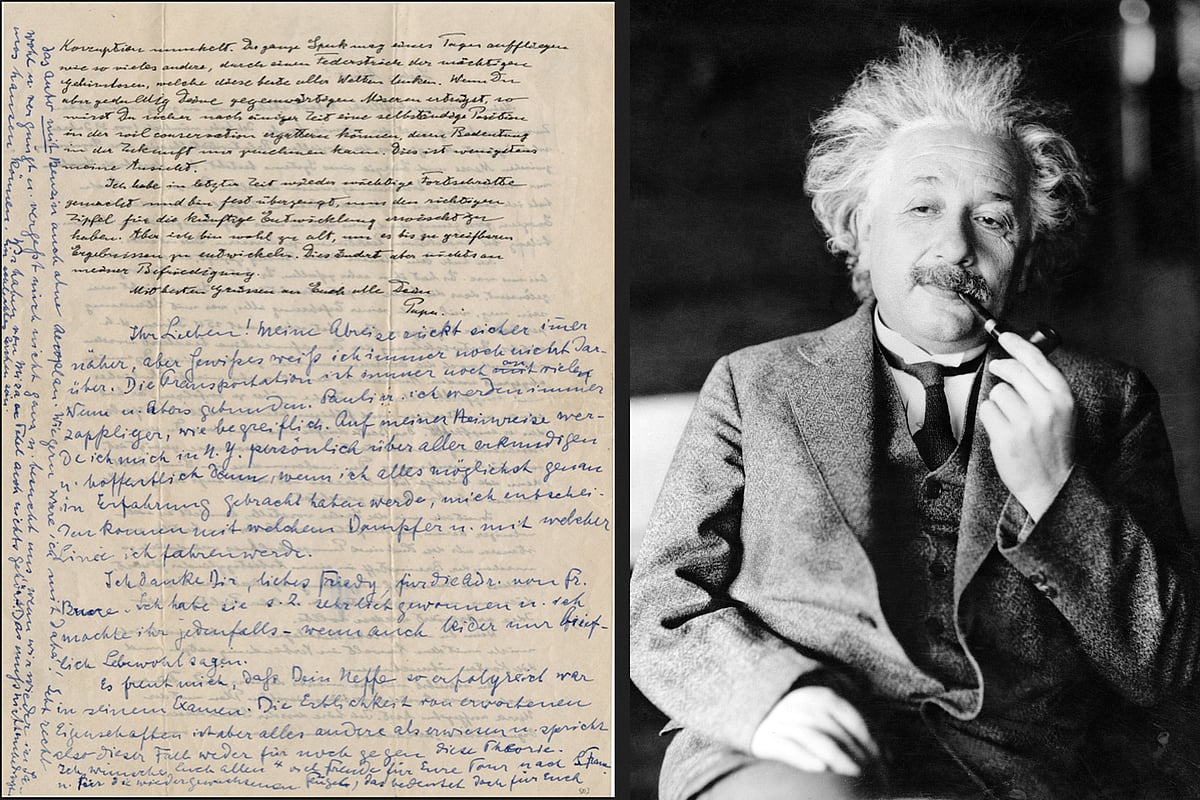 Korruption munkelt. Der ganze Spuk mag eines Tages auffliegen
wie so vieles andere, durch einen Federstrich der mächtigen
Gehirnlosen, welche diese beste aller Welten lenken. Wenn Du
aber geduldig Deine gegenwärtigen Miseren erträgst, so
wirst Du sicher nach einiger Zeit eine selbständige Position
in der soil conservation ergattern können, deren Bedeutung
in der Zukunft nur zunehmen kann. Dies ist wenigstens
meine Ansicht.
Ich habe in letzter Zeit wieder mächtige Fortschritte
gemacht und bin fest überzeugt, nun den richtigen
Zipfel für die künftige Entwicklung erwischt zu
haben. Aber ich bin wohl zu alt, um es bis zu greifbaren
Ergebnissen zu entwickeln. Dies ändert aber nichts an
meiner Befriedigung.
Mit besten Grüssen an Euch alle Dein
Papa.
Ihr Lieben! Meine Abreise rückt sicher immer
näher, aber Gewißes weiß ich immer noch nicht dar-
über. Die Transportation ist immer noch an vielen
Wenn u. Abers gebunden. Pauli u. ich werden immer
zappliger, wie begreiflich. Auf meiner Heimreise wer-
de ich mich in N.Y. persönlich über alles erkundigen
u. hoffentlich dann, wenn ich alles möglichst genau
in Erfahrung gebracht haben werde, mich entschei-
den können mit welchem Dampfer u. mit welcher
Linie ich fahren werde.
Ich danke Dir, liebes Friedy, für die Adr. von Fr.
Ich habe sie s. Z. sehr lieb gewonnen u. ich
möchte ihr jedenfalls – wenn auch leider nur brief-
lich Lebewohl sagen.
Es freut mich, daß Dein Neffe so erfolgreich war
in seinem Examen. Die Erblichkeit von erworbenen
Eigenschaften ist aber alles andere als erwiesen u. spricht
also dieser Fall weder für noch gegen diese Theorie.
Ich wünsche Euch allen viel Freude für Eure Tour nach S. Fran
u. für die wiedergewachsenen Flügel, das bedeutet doch für Euch
das Auto mit Benzin auch ohne Aeroplan. Wie gern wäre ich mit dabei! Lebt recht
wohl u. vergnügt u. vergeßt mich nicht ganz u. besucht uns, wenn wir wieder in